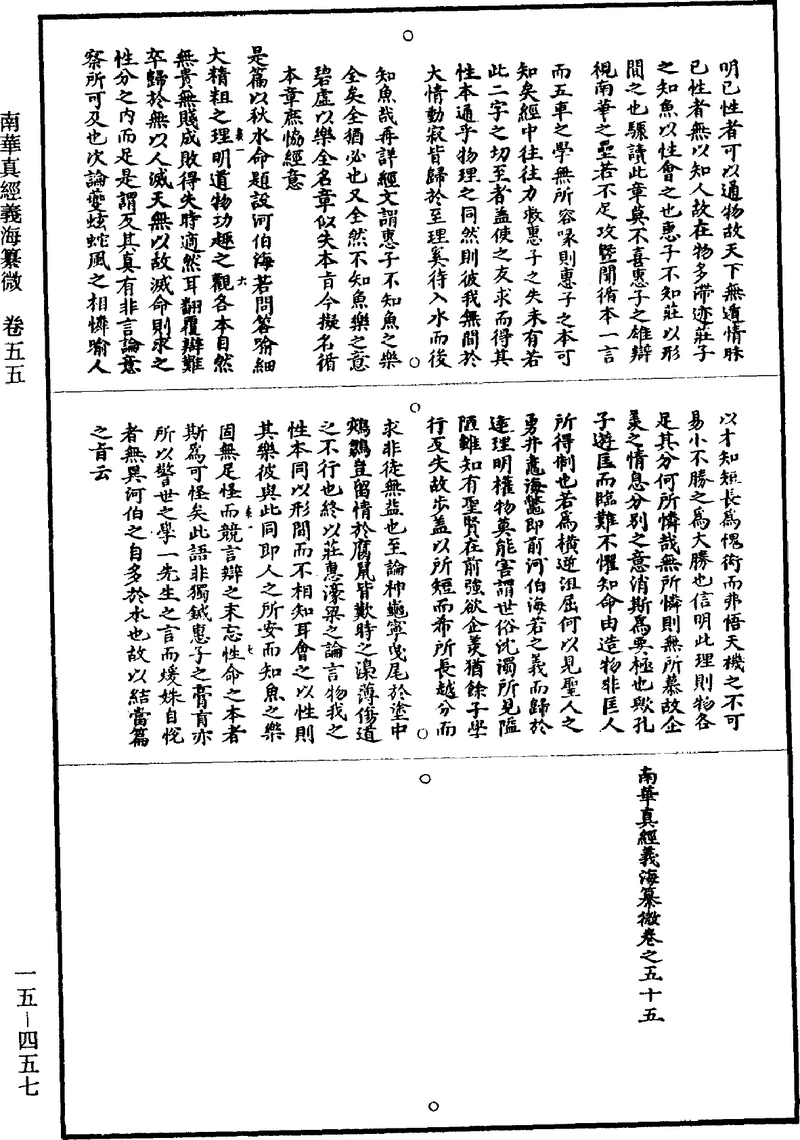 明己性者可以通物故天下無遁情昧
己性者無以知人故在物多滯迹莊子
之知魚以性會之也惠子不知莊以形
間之也驟讀此章莫不喜惠子之雄辯
視南華之壘若不足攻暨聞循本一言
而五車之學無所容喙則惠子之本可
知矣經中往往力救惠子之失未有若
此二字之切至者蓋使之反求而得其
性本通乎物理之同然則彼我無間於
大情動寂皆歸於至理奚待入水而後
知魚哉再詳經文謂惠子不知魚之樂
全矣全猶必也又全然不知魚樂之意
碧虛以樂全名章似失本旨今擬名循
本章庶協經意
是篇以秋水命題設河伯海若問答喻細
大精粗之理明道物功趣之觀各本自然
無貴無賤成敗得失時適然耳翻覆辯難
卒歸於無以人滅天無以故滅命則求之
性分之内而足是謂反其真有非言論意
察所可及也次論夔蚿蛇風之相憐喻人
以才知短長為愧衒而弗悟天機之不可
易小不勝之為大勝也信明此理則物各
足其分何所憐哉無所憐則無所慕故企
羨之情息分别之意消斯為要極也歟孔
子遊匡而臨難不懼知命由造物非匡人
所得制也若為橫逆沮屈何以見聖人之
勇井鼃海鼈即前河伯海若之義而歸於
達理明權物莫能害謂世俗沈濁所見隘
陋雖知有聖賢在前強欲企羨猶餘子學
行反失故步蓋以所短而希所長越分而
求非徒無益也至論神龜寧曳尾於塗中
鵷鶵豈留情於腐鼠皆歎時之澡薄傷道
之不行也終以莊惠濠梁之論言物我之
性本同以形間而不相知耳會之以性則
其樂彼與此同即人之所安而知魚之樂
固無足怪而競言辯之末忘性命之本者
斯為可怪矣此語非獨鍼惠子之膏肓亦
所以警世之學一先生之言而煖姝自悅
者無異河伯之自多於水也故以結當篇
之旨云
南華真經義海纂微卷之五十五
南華真經義海纂微　卷五五
一五－四五七